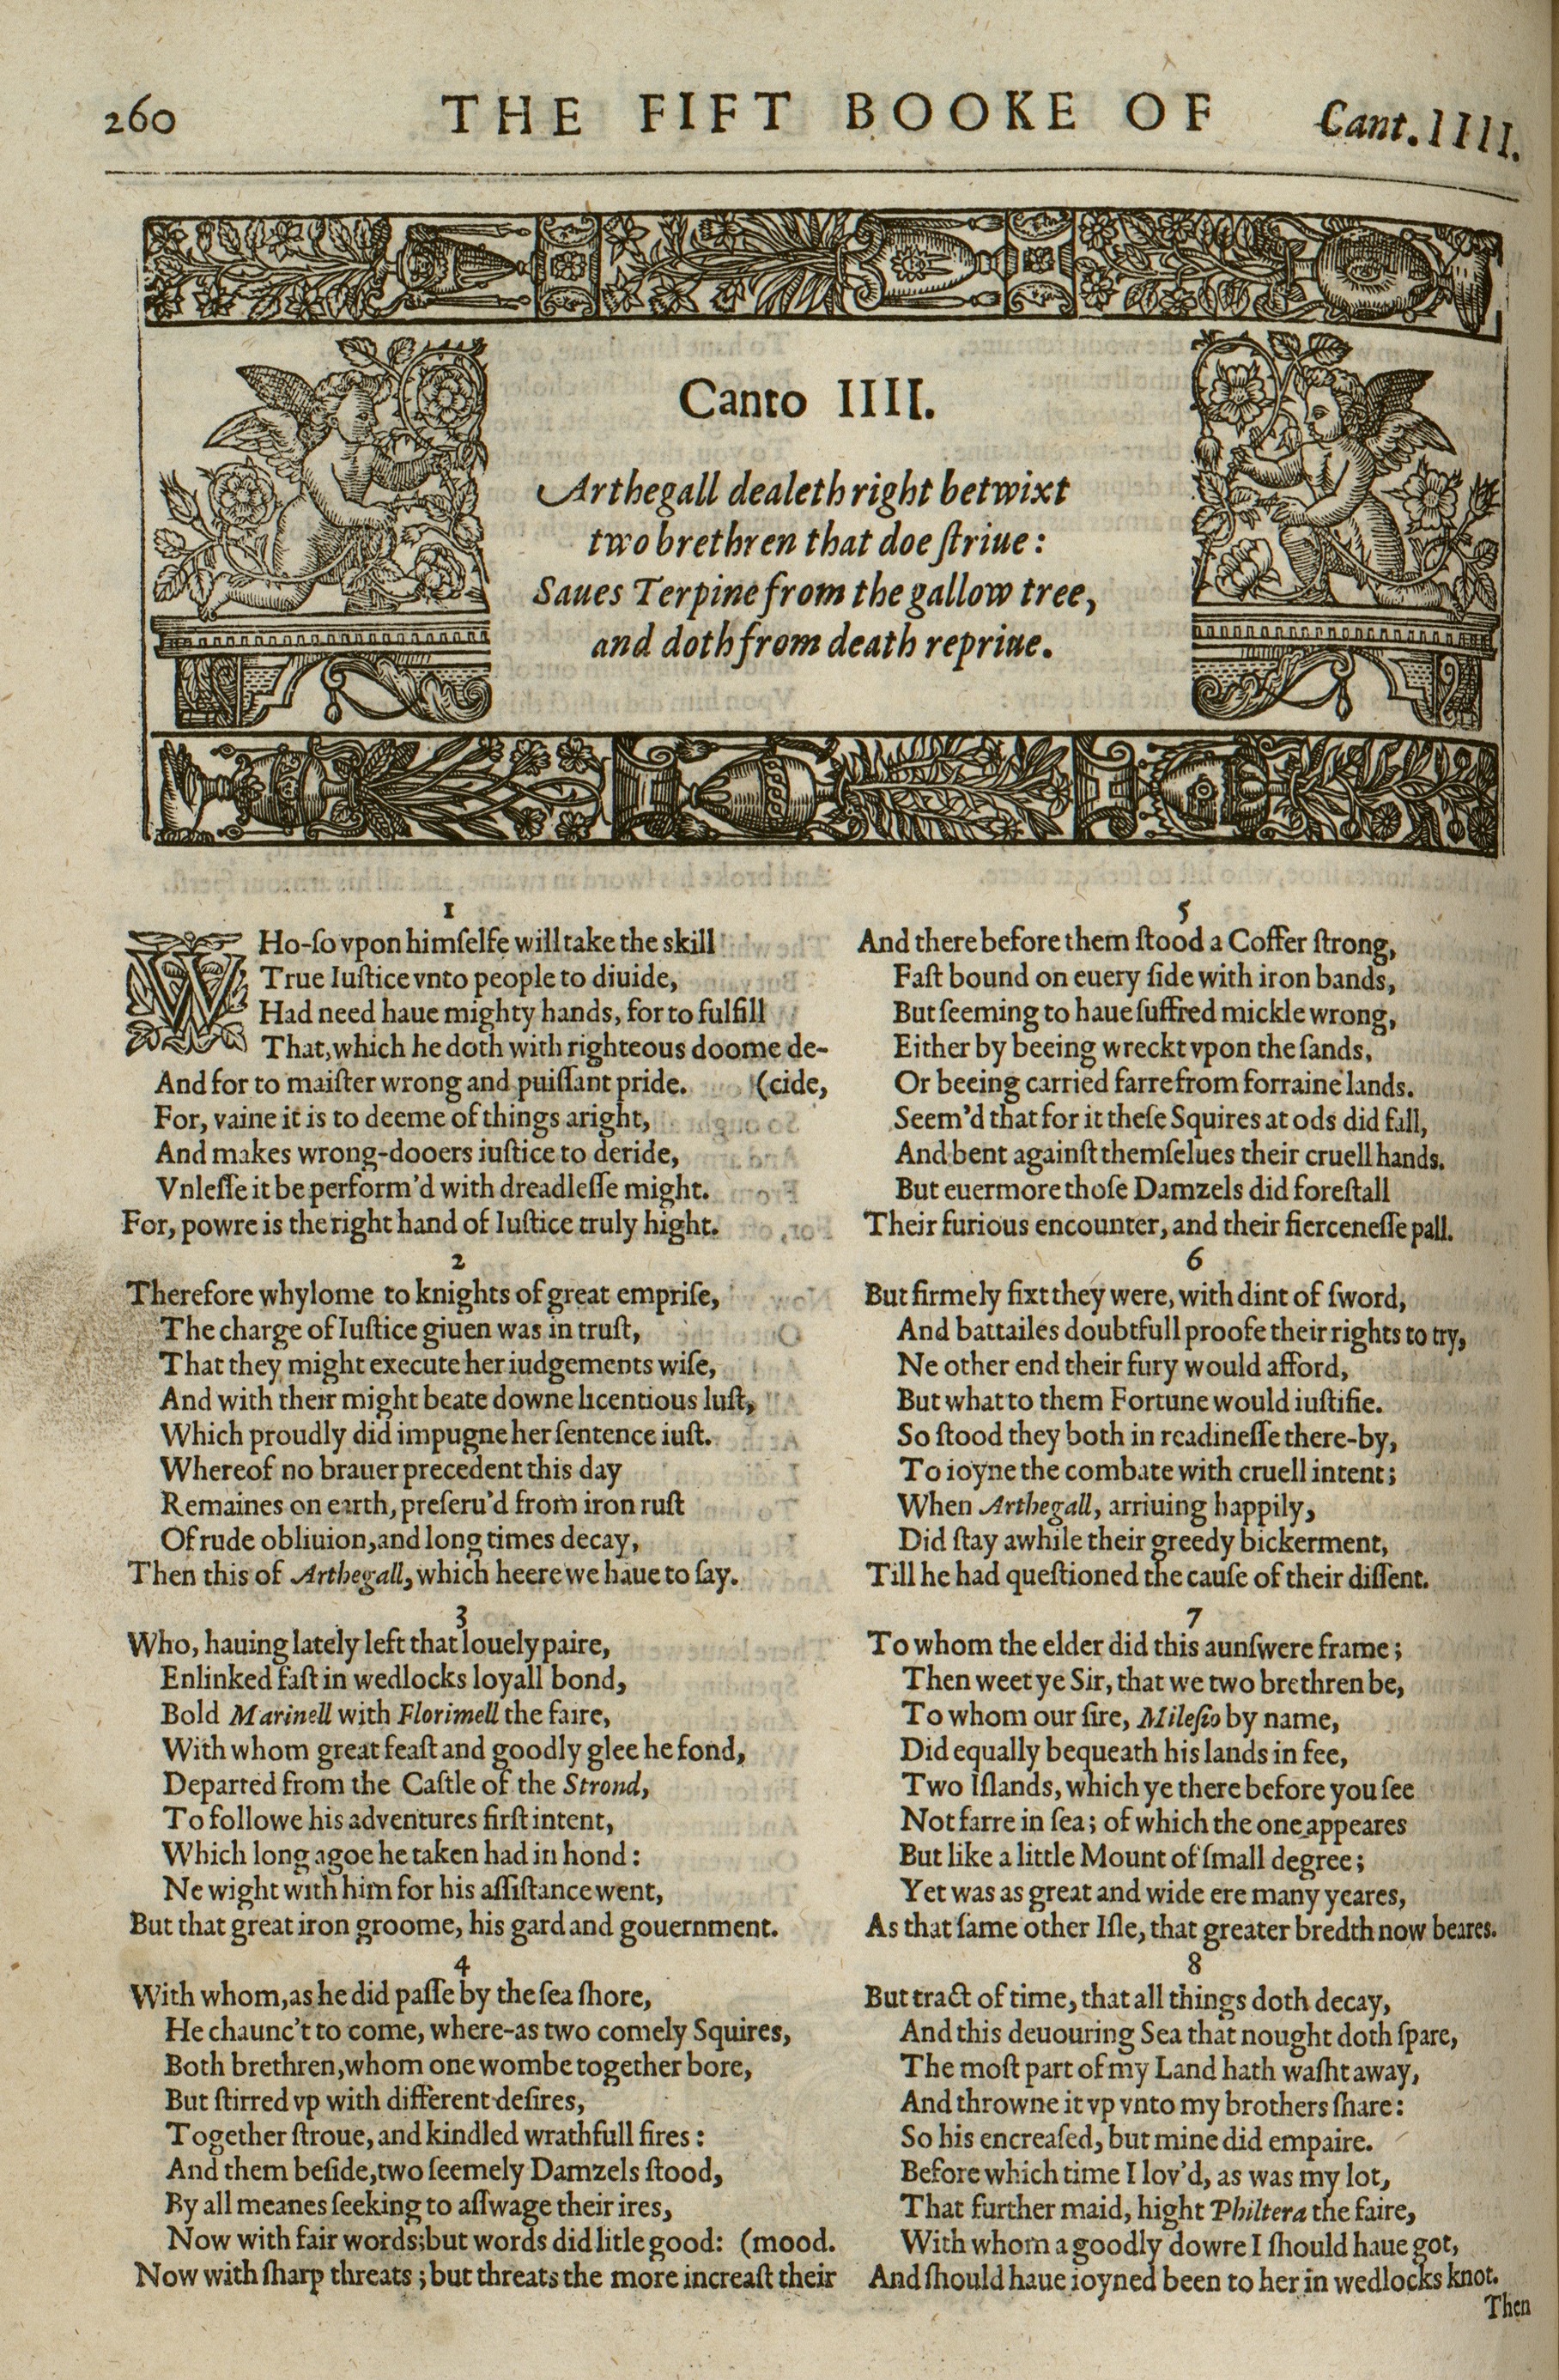 260
THE FIFT BOOKE OF
Cant. IIII.
Canto IIII.
Arthegall dealeth right betwixt
two brethren that doe ſtriue:
Saues Terpine from the gallow tree,
and doth from death repriue.
1
WHo-ſo vpon himſelfe will take the skill
True Iuſtice vnto people to diuide,
Had need haue mighty hands, for to fulfill
That, which he doth with righteous doome de-
And for to maiſter wrong and puiſſant pride. (cide,
For, vaine it is to deeme of things aright,
And makes wrong-dooers iuſtice to deride,
Vnleſſe it be perform'd with dreadleſſe might.
For, powre is the right hand of Iuſtice truly hight.
2
Therefore whylome to knights of great empriſe,
The charge of Iuſtice giuen was in truſt,
That they might execute her iudgements wiſe,
And with their might beate downe licentious luſt,
Which proudly did impugne her ſentence iuſt.
Whereof no brauer precedent this day
Remaines on earth, preſeru'd from iron ruſt
Of rude obliuion, and long times decay,
Then this of Arthegall, which heere we haue to ſay.
3
Who, hauing lately left that louely paire,
Enlinked faſt in wedlocks loyall bond,
Bold Marinell with Florimell the faire,
With whom great feaſt and goodly glee he fond,
Departed from the Caſtle of the Strond,
To followe his adventures firſt intent,
Which long agoe he taken had in hond:
Ne wight with him for his aſſiſtance went,
But that great iron groome, his gard and gouernment.
4
With whom, as he did paſſe by the ſea ſhore,
He chaunc't to come, where-as two comely Squires,
Both brethren, whom one wombe together bore,
But ſtirred vp with different deſires,
Together ſtroue, and kindled wrathfull fires:
And them beſide, two ſeemely Damzels ſtood,
By all meanes ſeeking to aſſwage their ires,
Now with fair words; but words did litle good: (mood.
Now with ſharp threats; but threats the more increaſt their
5
And there before them ſtood a Coffer ſtrong,
Faſt bound on euery ſide with iron bands,
But ſeeming to haue ſuffred mickle wrong,
Either by beeing wreckt vpon the ſands,
Or beeing carried farre from forraine lands.
Seem'd that for it theſe Squires at ods did fall,
And bent againſt themſelues their cruell hands.
But euermore thoſe Damzels did foreſtall
Their furious encounter, and their fierceneſſe pall.
6
But firmely fixt they were, with dint of ſword,
And battailes doubtfull proofe their rights to try,
Ne other end their fury would afford,
But what to them Fortune would iuſtifie.
So ſtood they both in readineſſe there-by,
To ioyne the combate with cruell intent;
When Arthegall, arriuing happily,
Did ſtay awhile their greedy bickerment,
Till he had queſtioned the cauſe of their diſſent.
7
To whom the elder did this aunſwere frame;
Then weet ye Sir, that we two brethren be,
To whom our ſire, Mileſio by name,
Did equally bequeath his lands in fee,
Two Iſlands, which ye there before you ſee
Not farre in ſea; of which the one appeares
But like a little Mount of ſmall degree;
Yet was as great and wide ere many yeares,
As that ſame other Iſle, that greater bredth now beares.
8
But tract of time, that all things doth decay,
And this deuouring Sea that nought doth ſpare,
The moſt part of my Land hath waſht away,
And throwne it vp vnto my brothers ſhare:
So his encreaſed, but mine did empaire.
Before which time I lov'd, as was my lot,
That further maid, hight Philtera the faire,
With whom a goodly dowre I ſhould haue got,
And ſhould haue ioyned been to her in wedlocks knot.
Then